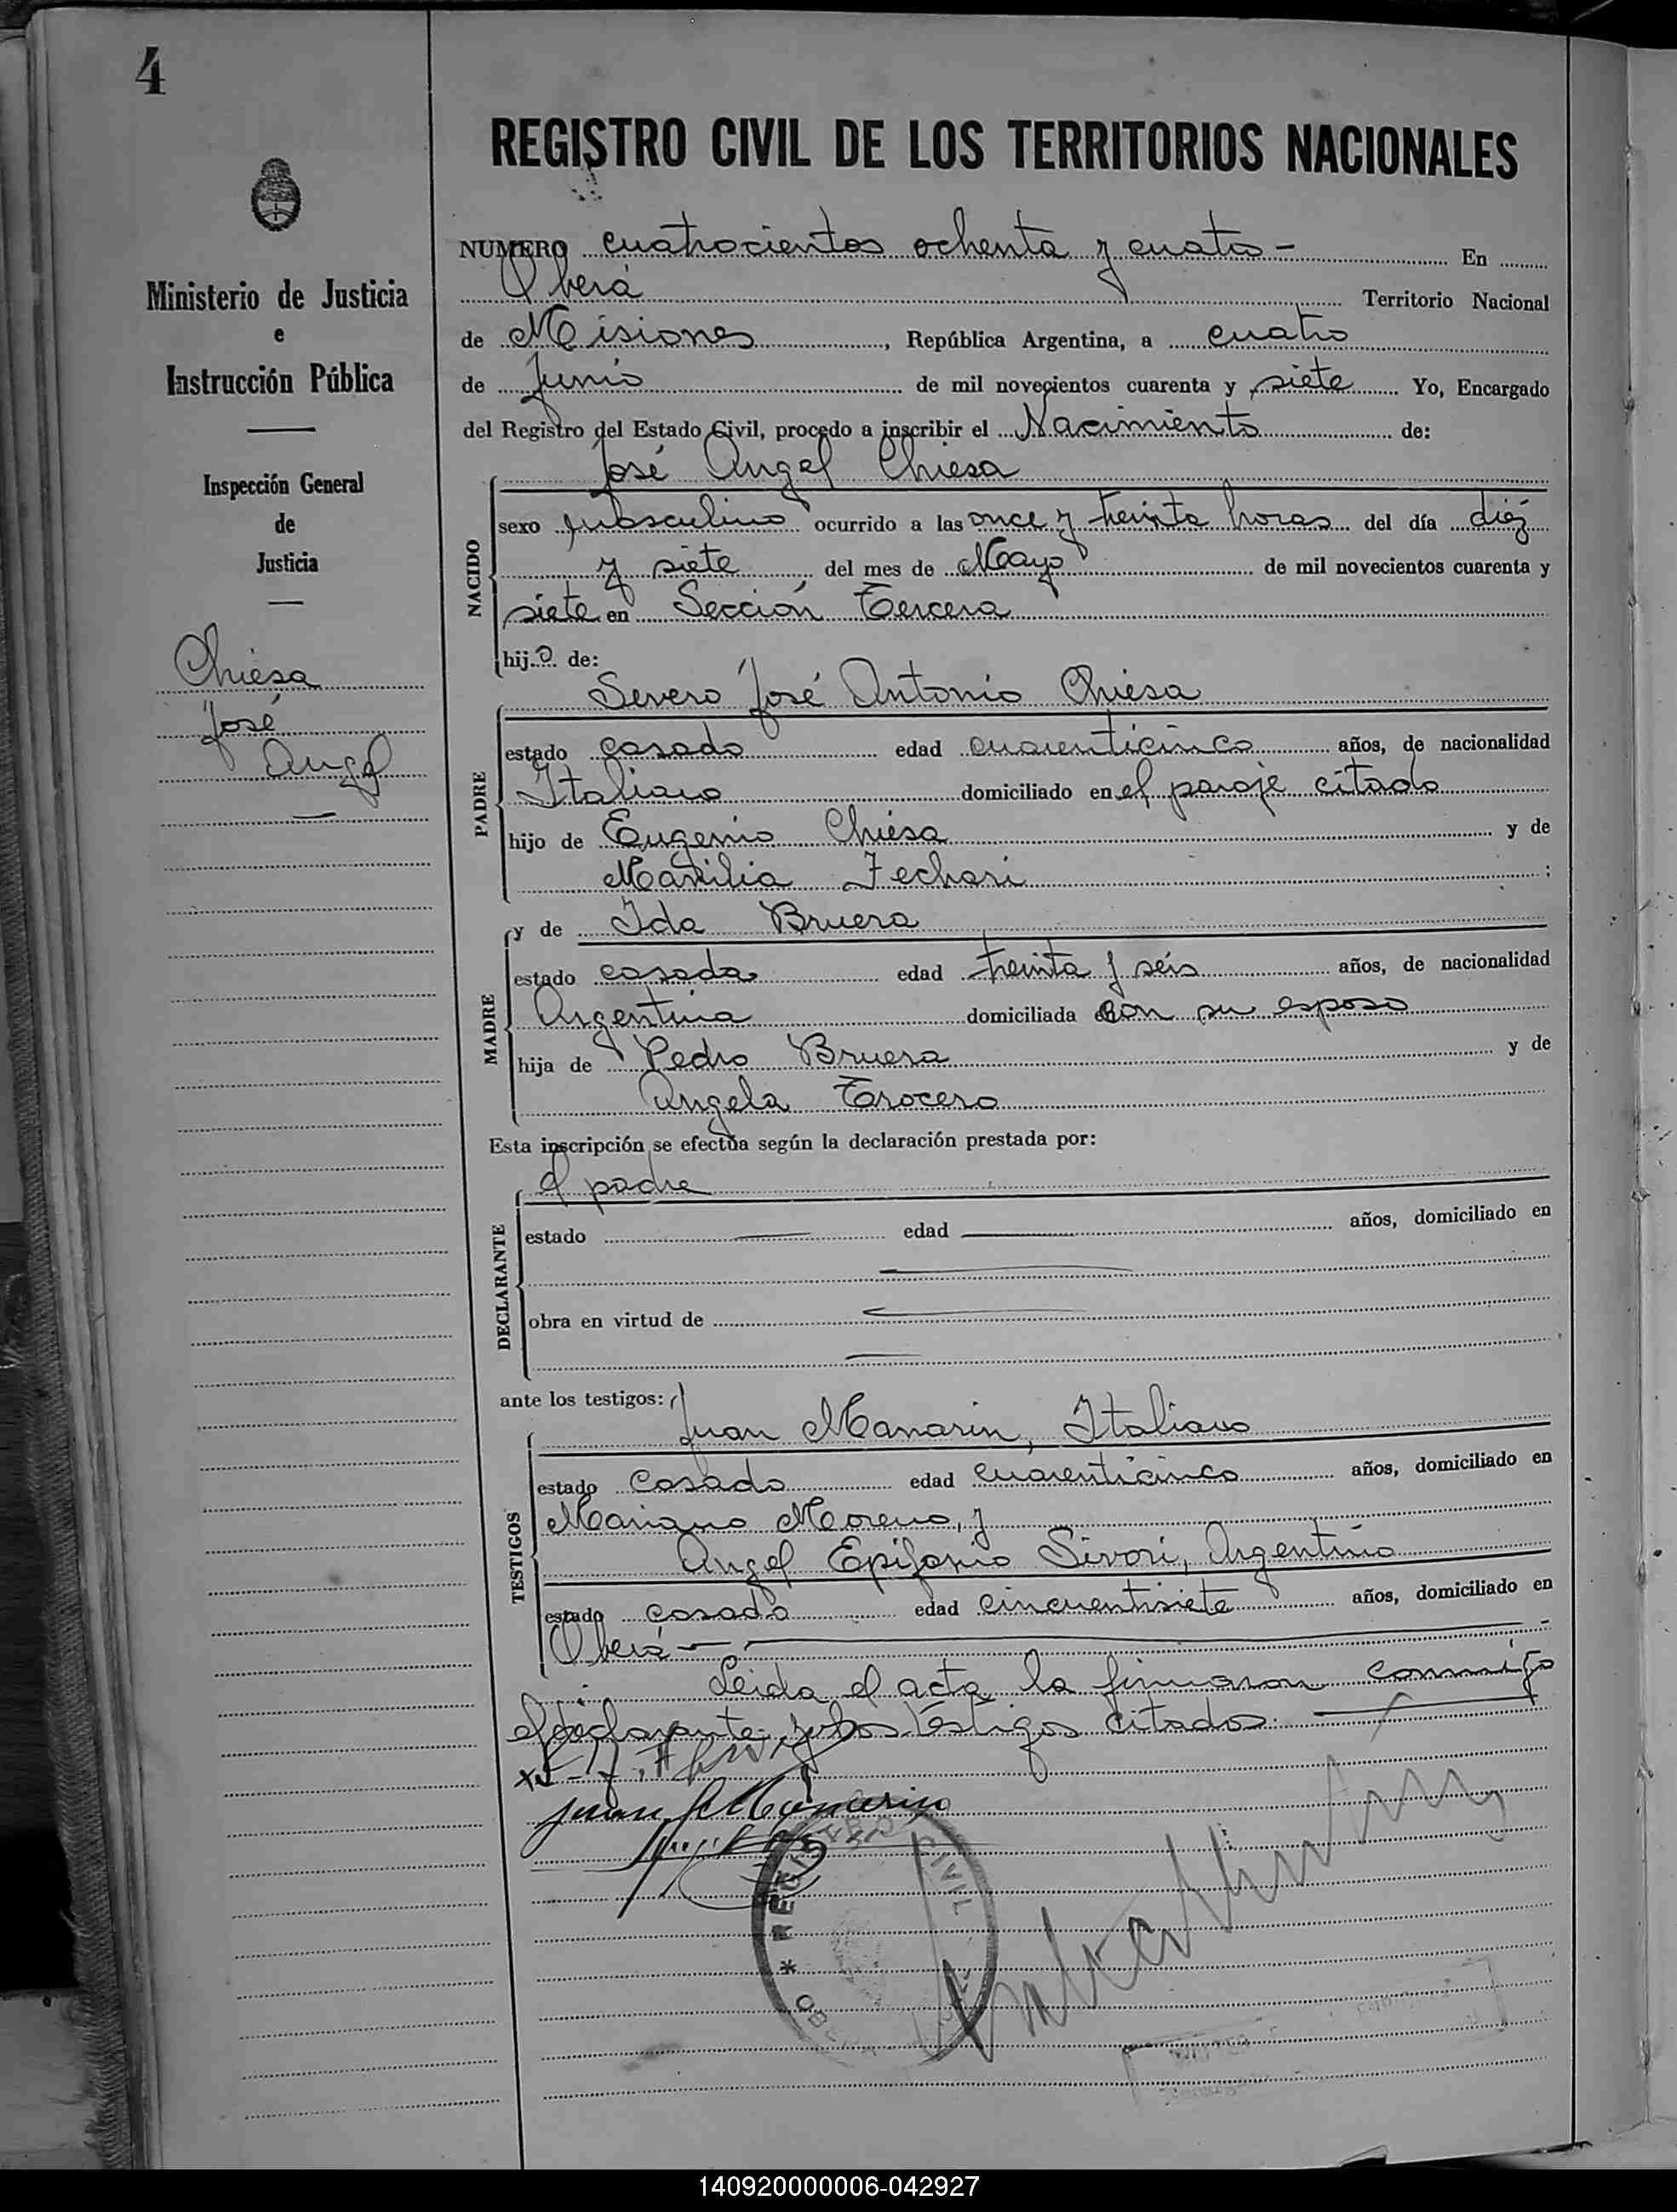 4
REGISTRO CIVIL DE LOS TERRITORIOS NACIONALES
Ministerio de Justicia
e
Instrucción Pública
Inspección General
de
Justicia
Chiesa
José
Angel
NUMERO cuatrocientos ochenta y cuatro - En
Oberá Territorio Nacional
de Misiones, República Argentina, a cuatro
de Junio de mil novecientos cuarenta y siete Yo, Encargado
del Registro del Estado Civil, procedo a inscribir el Nacimiento de:
José Angel Chiesa
NACIDO
sexo masculino ocurrido a las once y treinta horas del día diez
y siete del mes de Mayo de mil novecientos cuarenta y
siete en Sección Tercera
hijo de:
Severo José Antonio Chiesa
PADRE
estado casado edad cuarenticinco años, de nacionalidad
Italiano domiciliado en el paraje citado
hijo de Eugenio Chiesa y de
Fechari;
y de Ida Bruera
MADRE
estado casada edad treinta y seis años, de nacionalidad
Argentina domiciliada con su esposo
hija de Pedro Bruera y de
Angela Trocero
Esta inscripción se efectúa según la declaración prestada por:
el padre
DECLARANTE
estado edad años, domiciliado en
obra en virtud de
ante los testigos:
Juan Manarin, Italiano
TESTIGOS
estado casado edad cuarenticinco años, domiciliado en
Mariano Moreno, y
Angel Epifanio Sivori, Argentino
estado casado edad cincuentisiete años, domiciliado en
Oberá -
Leida el acta la firmaron conmigo
el declarante y los testigos citados.
Juan Manarin
REGISTRO CIVIL
140920000006-042927